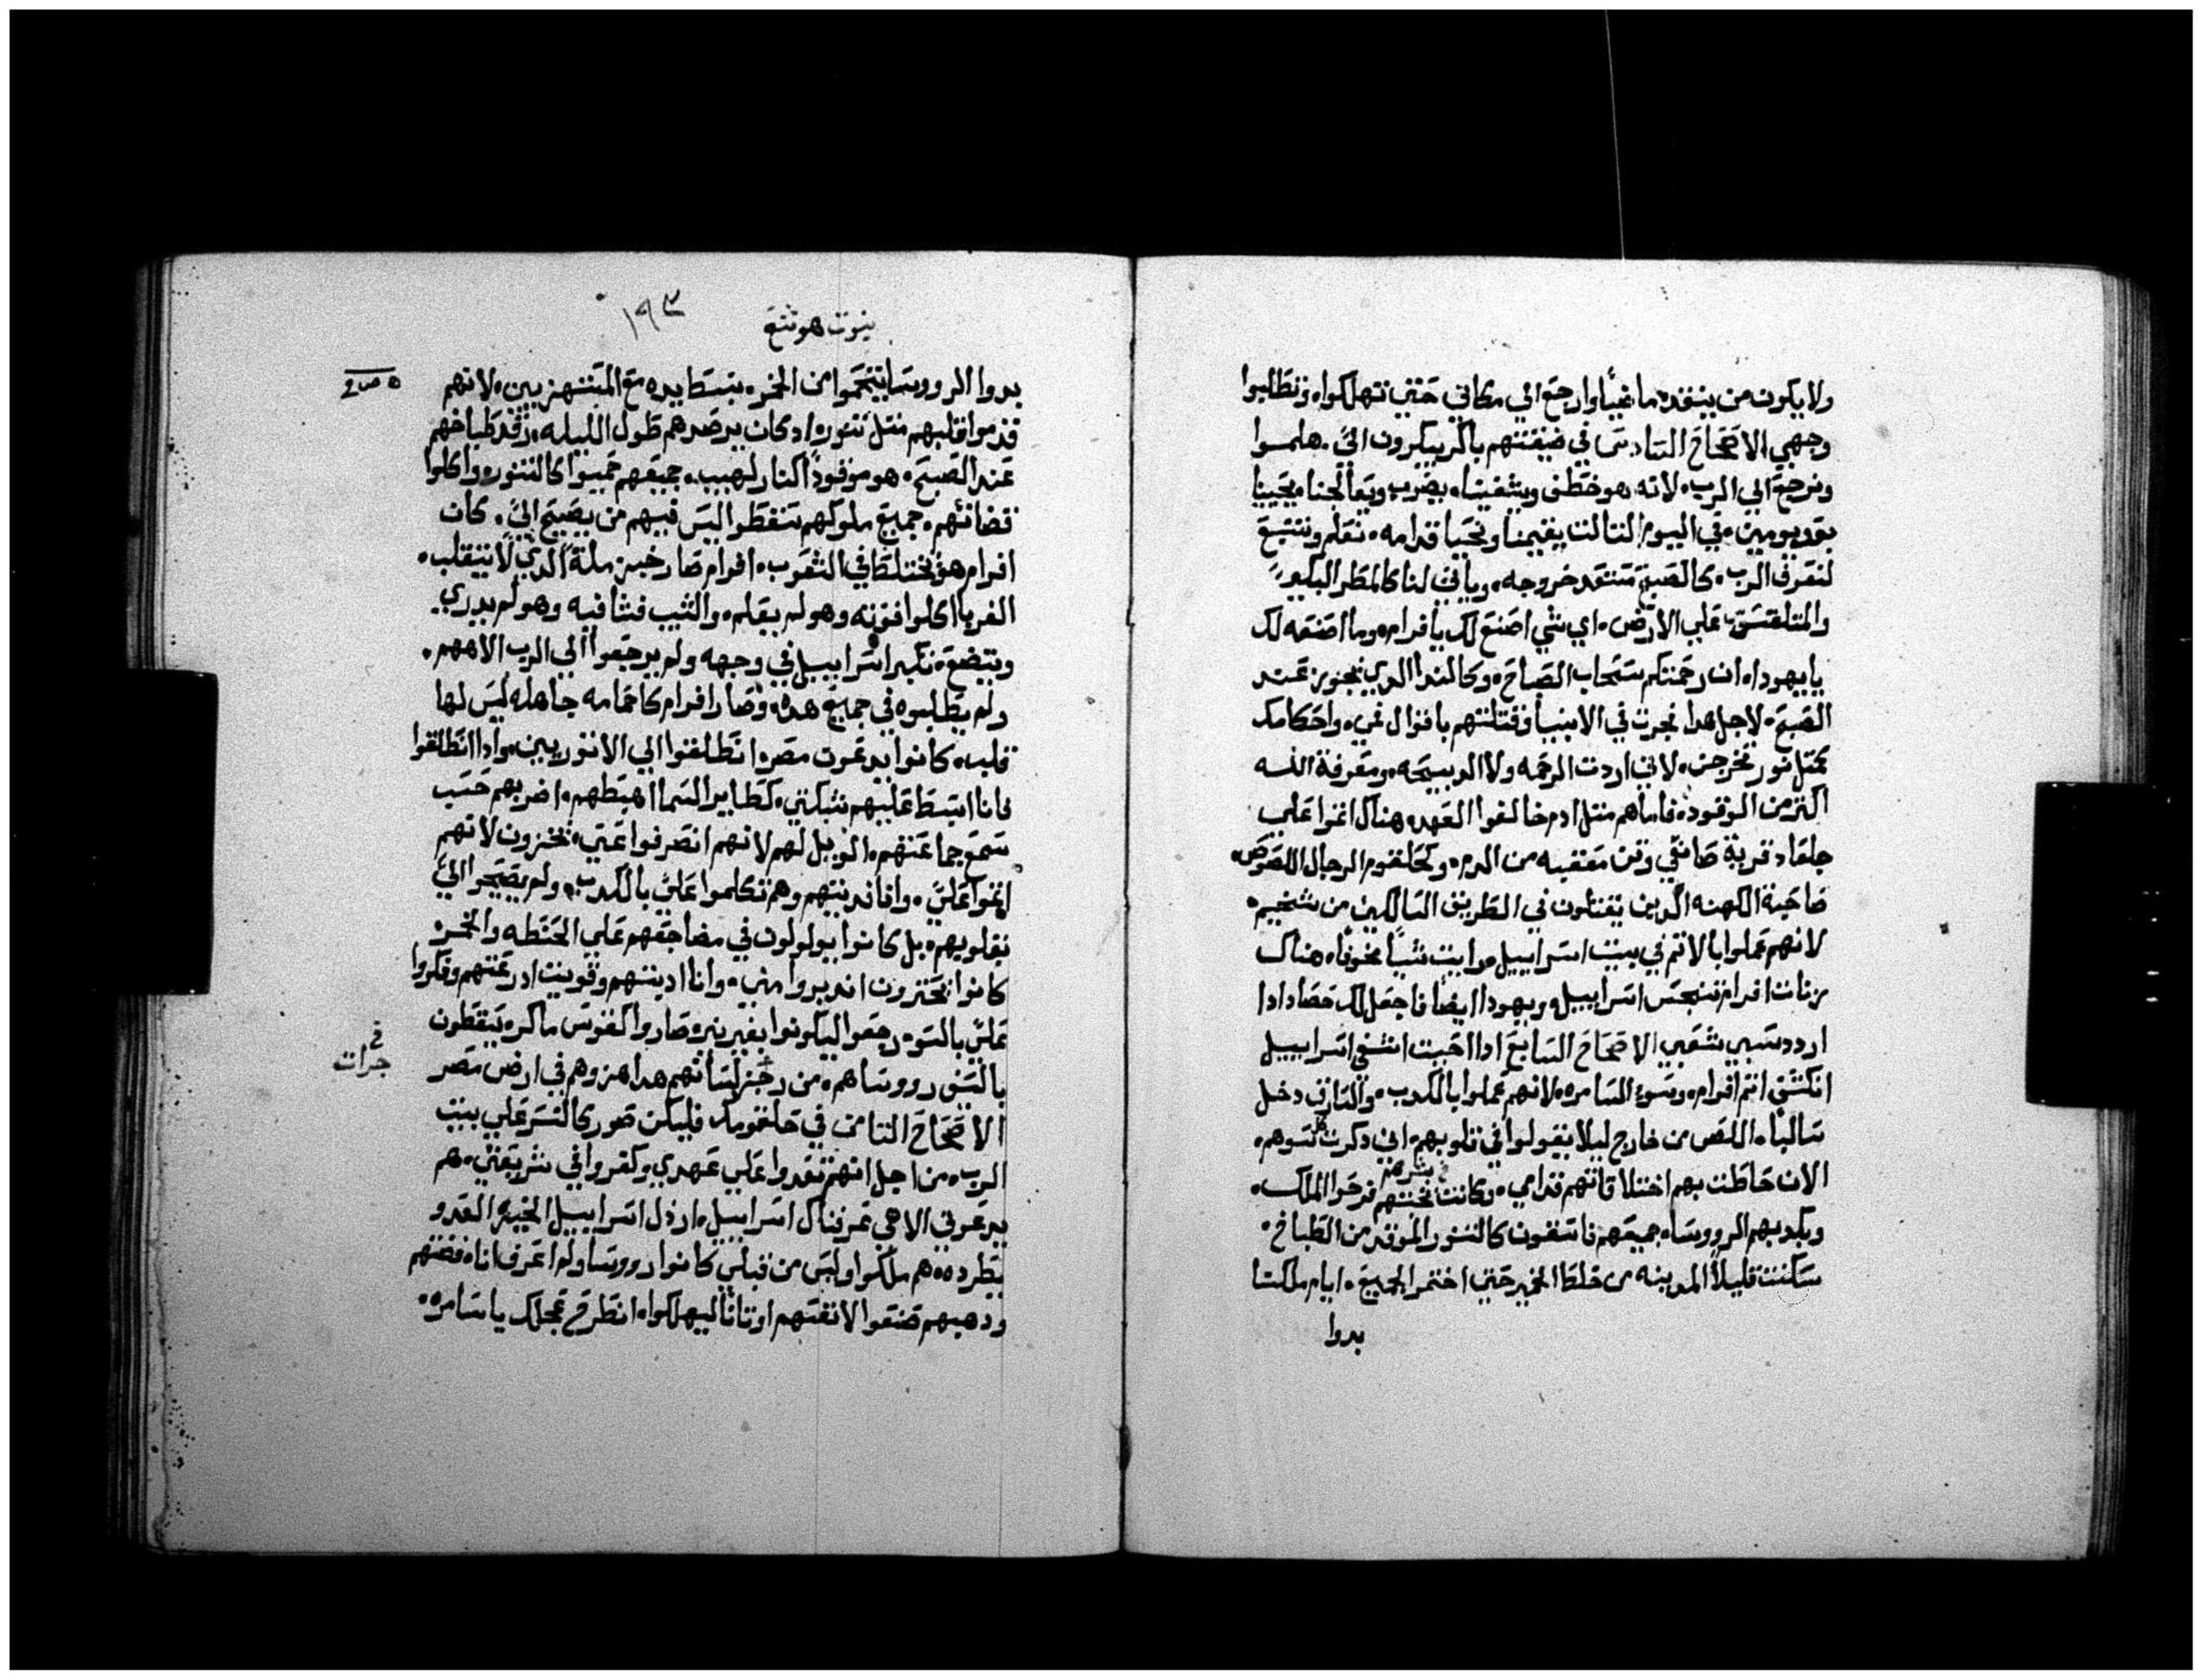 ولا يكون من ينقده ماغيا وارجع الي مكاني حتي تهلكوا وتطلبوا
وجهي الاصحاح السادس في ضيقتهم باكر يبكرون الي. هلموا
ونرجع الي الرب لانه هو خطف ويشفينا بضرب ويعالجنا يحيينا
بعد يومين في اليوم التالت يقيمنا ونحيا قدامه نعلم ونتبع
لنعرف الرب كالصبح مستعد خروجه وياتي لنا كالمطر البكير
والمتلقس علي الارض اي شي اصنع لك يافرام وما اصنعه لك
يا يهودا ان رحمتكم سحاب الصباح وكالندا الدي يجوز عند
الصبح لاجل هدا نجرت في الانبيا وقتلتهم باقوال فمي واحكامك
كمتل نور تخرجن لاني اردت الرحمه ولا الدبيحه ومعرفة الله
اكتر من الوقود فاما هم متل ادم خالفوا العهد هناك اتموا علي
جلعاد قرية صانعي وتن معتقبه من الدم وكحلقوم الرجال اللصوص
صاحبة الكهنه الدين يقتلون في الطريق السالكين من شخيم
لانهم عملوا بالاتم في بيت اسراييل رايت شيا مخوفا هناك
زنات افرام تنجس اسراييل ويهودا ايضا فاجعل لك حصادا ادا
اردد سبي شعبي الاصحاح السابع ادا احببت اشفي اسراييل
انكشف اتم افرام وسوء السامره لانهم عملوا بالكدب والسارق دخل
سالبا اللص من خارج ليلا يقولوا في قلوبهم اني دكرت سوهم
الان حاطت بهم اختلاقاتهم قدامي وكانت بشرهم فرحوا الملك
وبكدبهم الروسا جميعهم فاسقون كالتنور الموقد من الطباخ
سكنت قليلا المدينه من خلط الخمير حتي اختمر الجميع ايام ملكنا
بدوا
نبوت هوشع
١٩٣
بدوا الروسا يتحموا من الخمر بتسط يده مع المستهزيين لانهم
قدموا قلبهم متل تنور اد كان يرصدهم طول الليله رقد طباخهم
عند الصبح هو موقودا كنار لهيب جميعهم حميوا كالتنور واكلوا
قضاتهم جميع ملوكهم سقطوا ليس فيهم من يصيح الي. كان
افرام هو يختلط في الشعوب افرام صار خبز ملة الدي لا ينقلب
الغربا اكلوا قوته وهو لم يعلم والشيب فشا فيه وهو لم يدري
ويتضع تكبر اسراييل في وجهه ولم يرجعوا الي الرب الاههم
ولم يطلبوه في جميع هده وصار افرام كاحمامه جاهله ليس لها
قلب كانوا يدعوت مصر انطلقوا الي الاتوريين وادا انطلقوا
فانا ابسط عليهم شبكتي كطاير السما اهبطهم اضربهم حسب
سمع جماعتهم الويل لهم لانهم انصرفوا عني يخزون لانهم
اتموا علي وانا فديتهم وهم تكلموا علي بالكدب ولم يصيحوا الي
بقلوبهم بل كانوا يولولون في مضاجعهم علي الحنطه والخمر
كانوا يجترون ادبروا مني وانا ادبتهم وقويت ادرعتهم وفكروا
علي بالسو رجعوا ليكونوا بغير نير صاروا كقوس ماكره يسقطون
بالسيف رووساهم من رجز لسانهم هدا هزوهم في ارض مصر
الاصحاح التامن في حلقومك فليكن صور كالنسر علي بيت
الرب من اجل انهم تعدوا علي عهدي وكفروا في شريعتي هم
يدعوني الاهي عرفناك اسراييل اردل اسراييل الخير العدو
يطرده هم ملكوا وليس من قبلي كانوا رووسا ولم اعرف انا فضتهم
ودهبهم صنعوا لانفسهم اوتانا ليهلكوا انطرح عجلك يا سامره
في
جرات